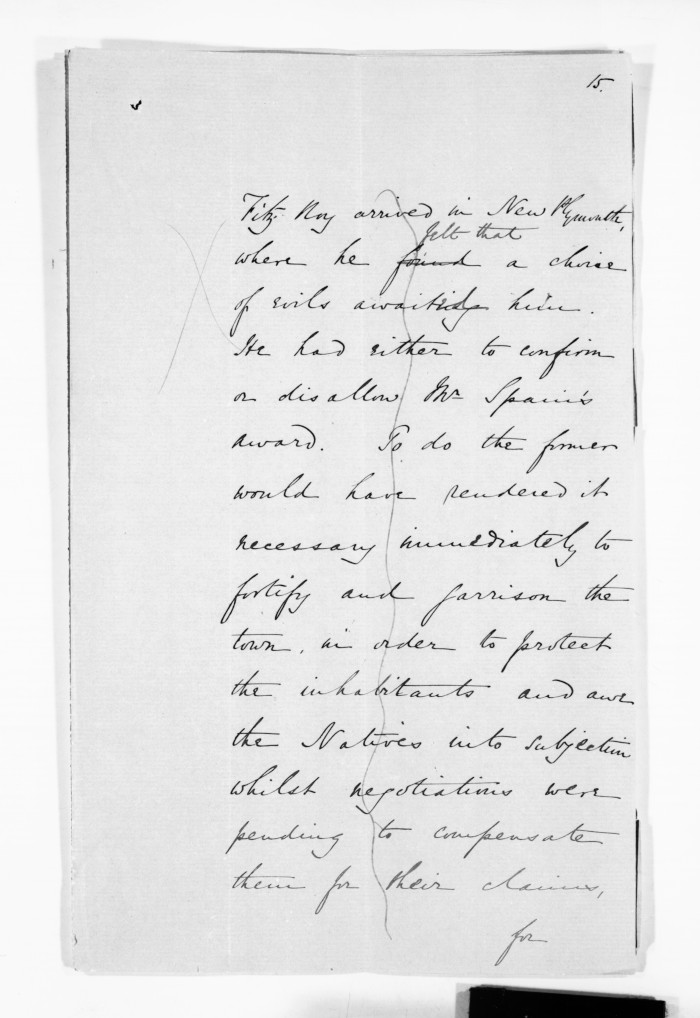 15.
Fitz Roy arrived in New Plymouth,
felt that
where he found a choice
of evils awaiting him.
He had either to confirm
or disallow Mr Spain's
award. To do the former
would have rendered it
necessary immediately to
fortify and garrison the
town, in order to protect
the inhabitants and awe
the Natives into subjection
whilst negotiations were
pending to compensate
them for their claims,
for